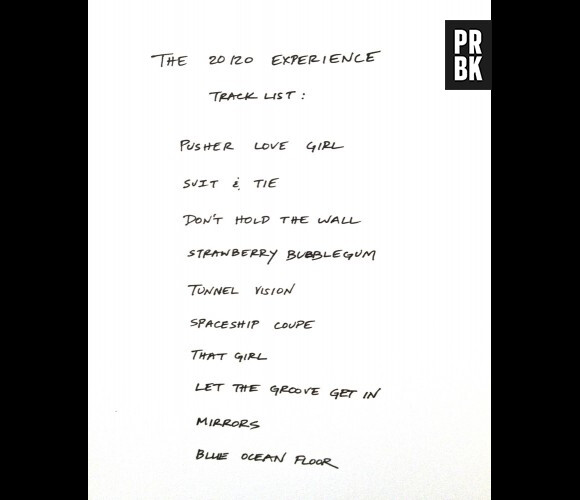 THE 20/20 EXPERIENCE
TRACK LIST:
PUSHER LOVE GIRL
SUIT & TIE
DON'T HOLD THE WALL
STRAWBERRY BUBBLEGUM
TUNNEL VISION
SPACESHIP COUPE
THAT GIRL
LET THE GROOVE GET IN
MIRRORS
BLUE OCEAN FLOOR
PR
BK